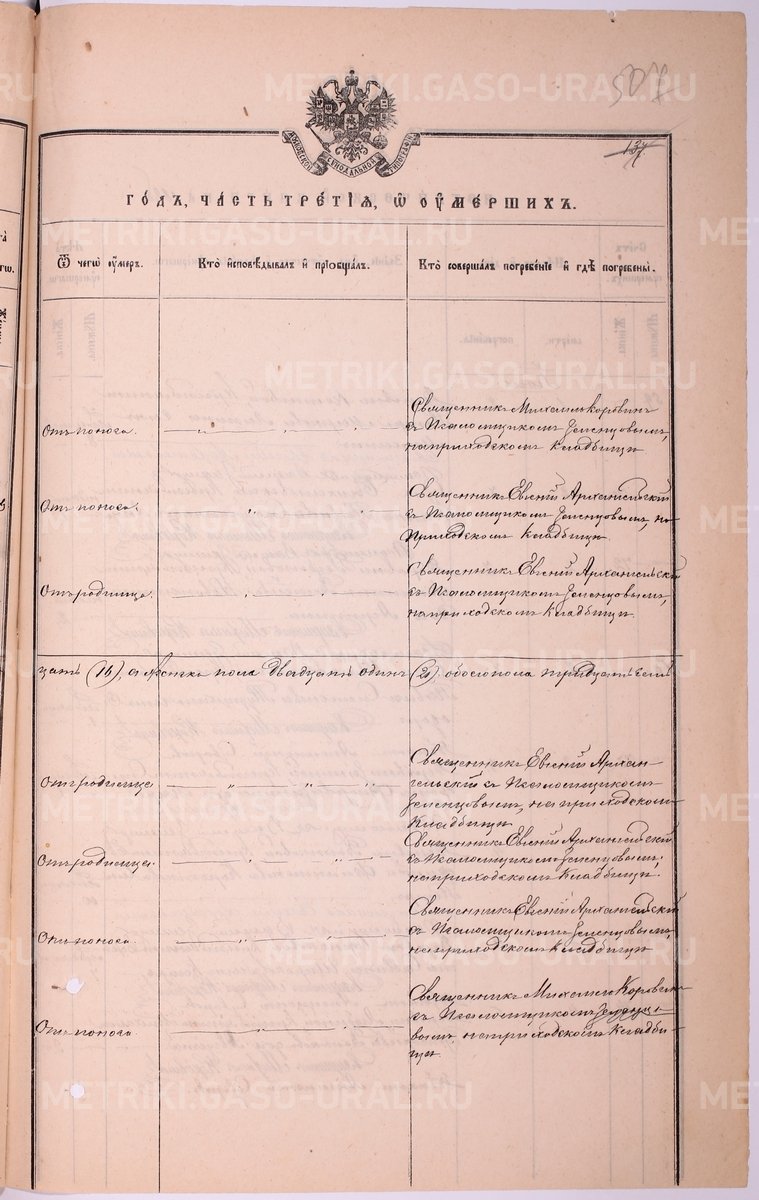 METRIKI.GASO-URAL.RU
507
137
МОСКОВСКОЙ СѴНОДАЛЬНОЙ ТИПОГРАФІИ
ГО́ДЪ, ЧА́СТЬ ТРЕ́ТІѦ, Ѡ҆ ОУ҆МЕ́РШИХЪ.
Ѿ чегѡ̀ оу҆́меръ.
Кто̀ и҆сповѣ́дывалъ и҆ прїѻбща́лъ.
Кто̀ соверша́лъ погребе́нїе и҆ гдѣ̀ погребены̀.
METRIKI.GASO-URAL.RU
Отъ поноса.
Священникъ Михаилъ Коровинъ
съ Псаломщикомъ Зеленцовымъ,
на приходскомъ кладбищѣ
Отъ поноса.
Священникъ Евгеній Архангельскій
съ Псаломщикомъ Зеленцовымъ, на
Приходскомъ кладбищѣ.
METRIKI.GASO-URAL.RU
Отъ родимца.
Священникъ Евгеній Архангельскій
съ Псаломщикомъ Зеленцовымъ,
на приходскомъ кладбищѣ.
METRIKI.GASO-URAL.RU
цать (16), а женска пола двадцать одинъ (21), обоего пола тридцать семь
Отъ родимца.
Священникъ Евгеній Архан-
гельскій съ Псаломщикомъ
Зеленцовымъ, на приходскомъ
кладбищѣ
METRIKI.GASO-URAL.RU
Отъ родимца.
Священникъ Евгеній Архангельскій
съ Псаломщикомъ Зеленцовымъ,
на приходскомъ кладбищѣ.
Отъ поноса.
Священникъ Евгеній Архангельскій
съ Псаломщикомъ Зеленцовымъ,
на приходскомъ кладбищѣ
METRIKI.GASO-URAL.RU
Отъ поноса.
Священникъ Михаилъ Коровинъ
съ Псаломщикомъ Зеленцо-
вымъ, на приходскомъ кладби-
щѣ
METRIKI.GASO-URAL.RU